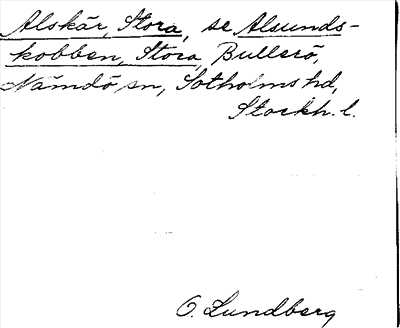 Alskär, Stora, se Alsunds-
kobben, Stora, Bullerö,
Nämdö sn, Sotholms hd,
Stockh. l.
O. Lundberg